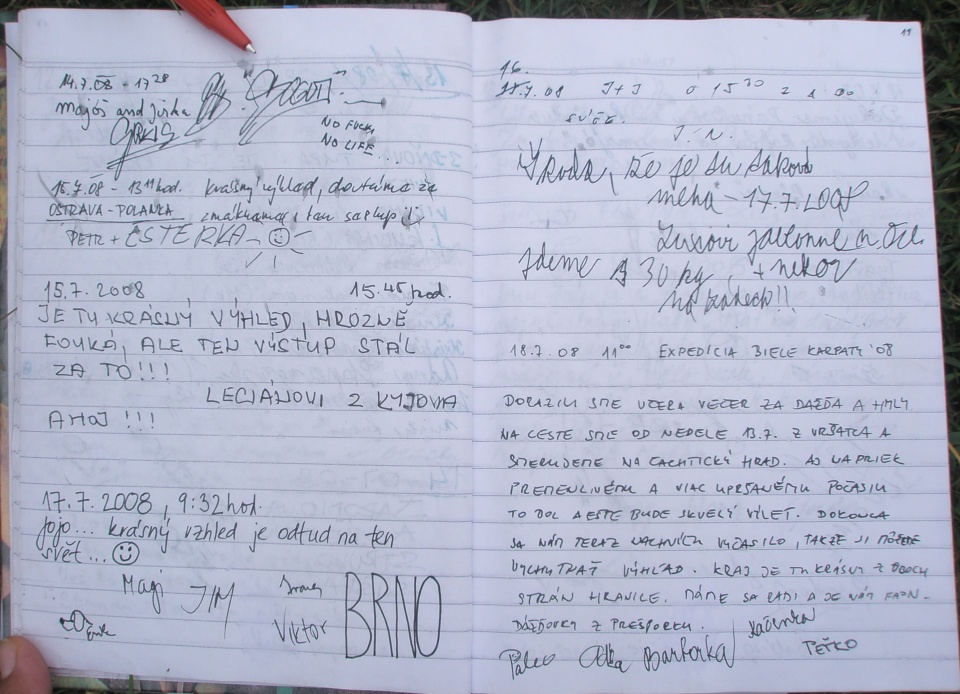 14.7.08 - 17 28
majoš and jirka
NO FUCK,
NO LIFE...
15.7.08 - 13 11 hod. krásný výhled, doufáme že
OSTRAVA - POLANKA
PETR + ESTERKA
15.7.2008 15.45 hod.
JE TU KRÁSNÝ VÝHLED, HROZNĚ
FOUKÁ, ALE TEN VÝSTUP STÁL
ZA TO!!!
LECIÁNOVI Z KYJOVA
AHOJ !!!
17.7.2008, 9:32 hod.
jojo... krásný vzhled je odtud na ten
svět...
Magi JIM
Viktor BRNO
11
16.
7.08 J+J o 15 30
J. N.
Škoda, že je tu taková
mlha - 17.7.2008
Jdeme s 30 kg
na zádech!!
18.7.08 11 00 EXPEDÍCIA BIELE KARPATY '08
DORAZILI SME VČERA VEČER ZA DAŽĎA A HMLY.
NA CESTE SME OD NEDELE 13.7. Z VRŠATCA A
SMERUJEME NA ČACHTICKÝ HRAD. AJ NAPRIEK
PREMENLIVÉMU A VIAC UPRŠANÉMU POČASIU
TO BOL A EŠTE BUDE SKVELÝ VÝLET. DOKONCA
SA NÁM TERAZ NACHVÍĽU VYČASILO, TAKŽE SI MÔŽEME
VYCHUTNAŤ VÝHĽAD. KRAJ JE TU KRÁSNY Z OBOCH
STRÁN HRANICE. MÁME SA RADI A JE NÁM FAJN.
DÁŽĎOVKY Z PREŠPORKU. Kačenka
Paľo Aďka Barborka PEŤKO